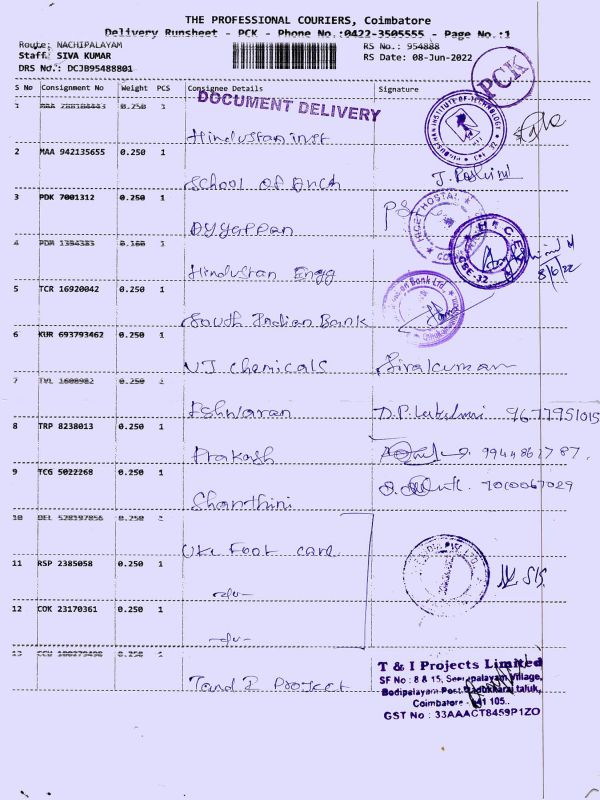 THE PROFESSIONAL COURIERS, Coimbatore
Delivery Runsheet - PCK - Phone No.:0422-3505555 - Page No.:1
Route: NACHIPALAYAM
RS No.: 954888
Staff: SIVA KUMAR
RS Date: 08-Jun-2022
DRS No.: DCJB95488801
PCK
S No Consignment No Weight PCS Consignee Details Signature
DOCUMENT DELIVERY
1 0.250 1
Hindustan inst
2 MAA 942135655 0.250 1
School Of Arch
3 PDK 7001312 0.250 1
Ayyappan
4 PDM 1394383 0.100 1
Hindustan Engg
8/6/22
5 TCR 16920042 0.250 1
South Indian Bank
6 KUR 693793462 0.250 1
VJ chemicals Sivakumar
7 TVL 1608982 0.250 1
Eshwaran D.P. 9677951015
8 TRP 8238013 0.250 1
Prakash
9 TCG 5022268 0.250 1
Shanthini 7010067029
10 DEL 528197856 0.250 1
Uki Foot care
11 RSP 2385058 0.250 1
-do-
12 COK 23170361 0.250 1
-do-
13 0.250 1
T and I Project
T & I Projects Limited
SF No : 8 & 15, Village,
Bodipalayam Post, taluk,
Coimbatore - 641 105..
GST No : 33AAACT8459P1ZO